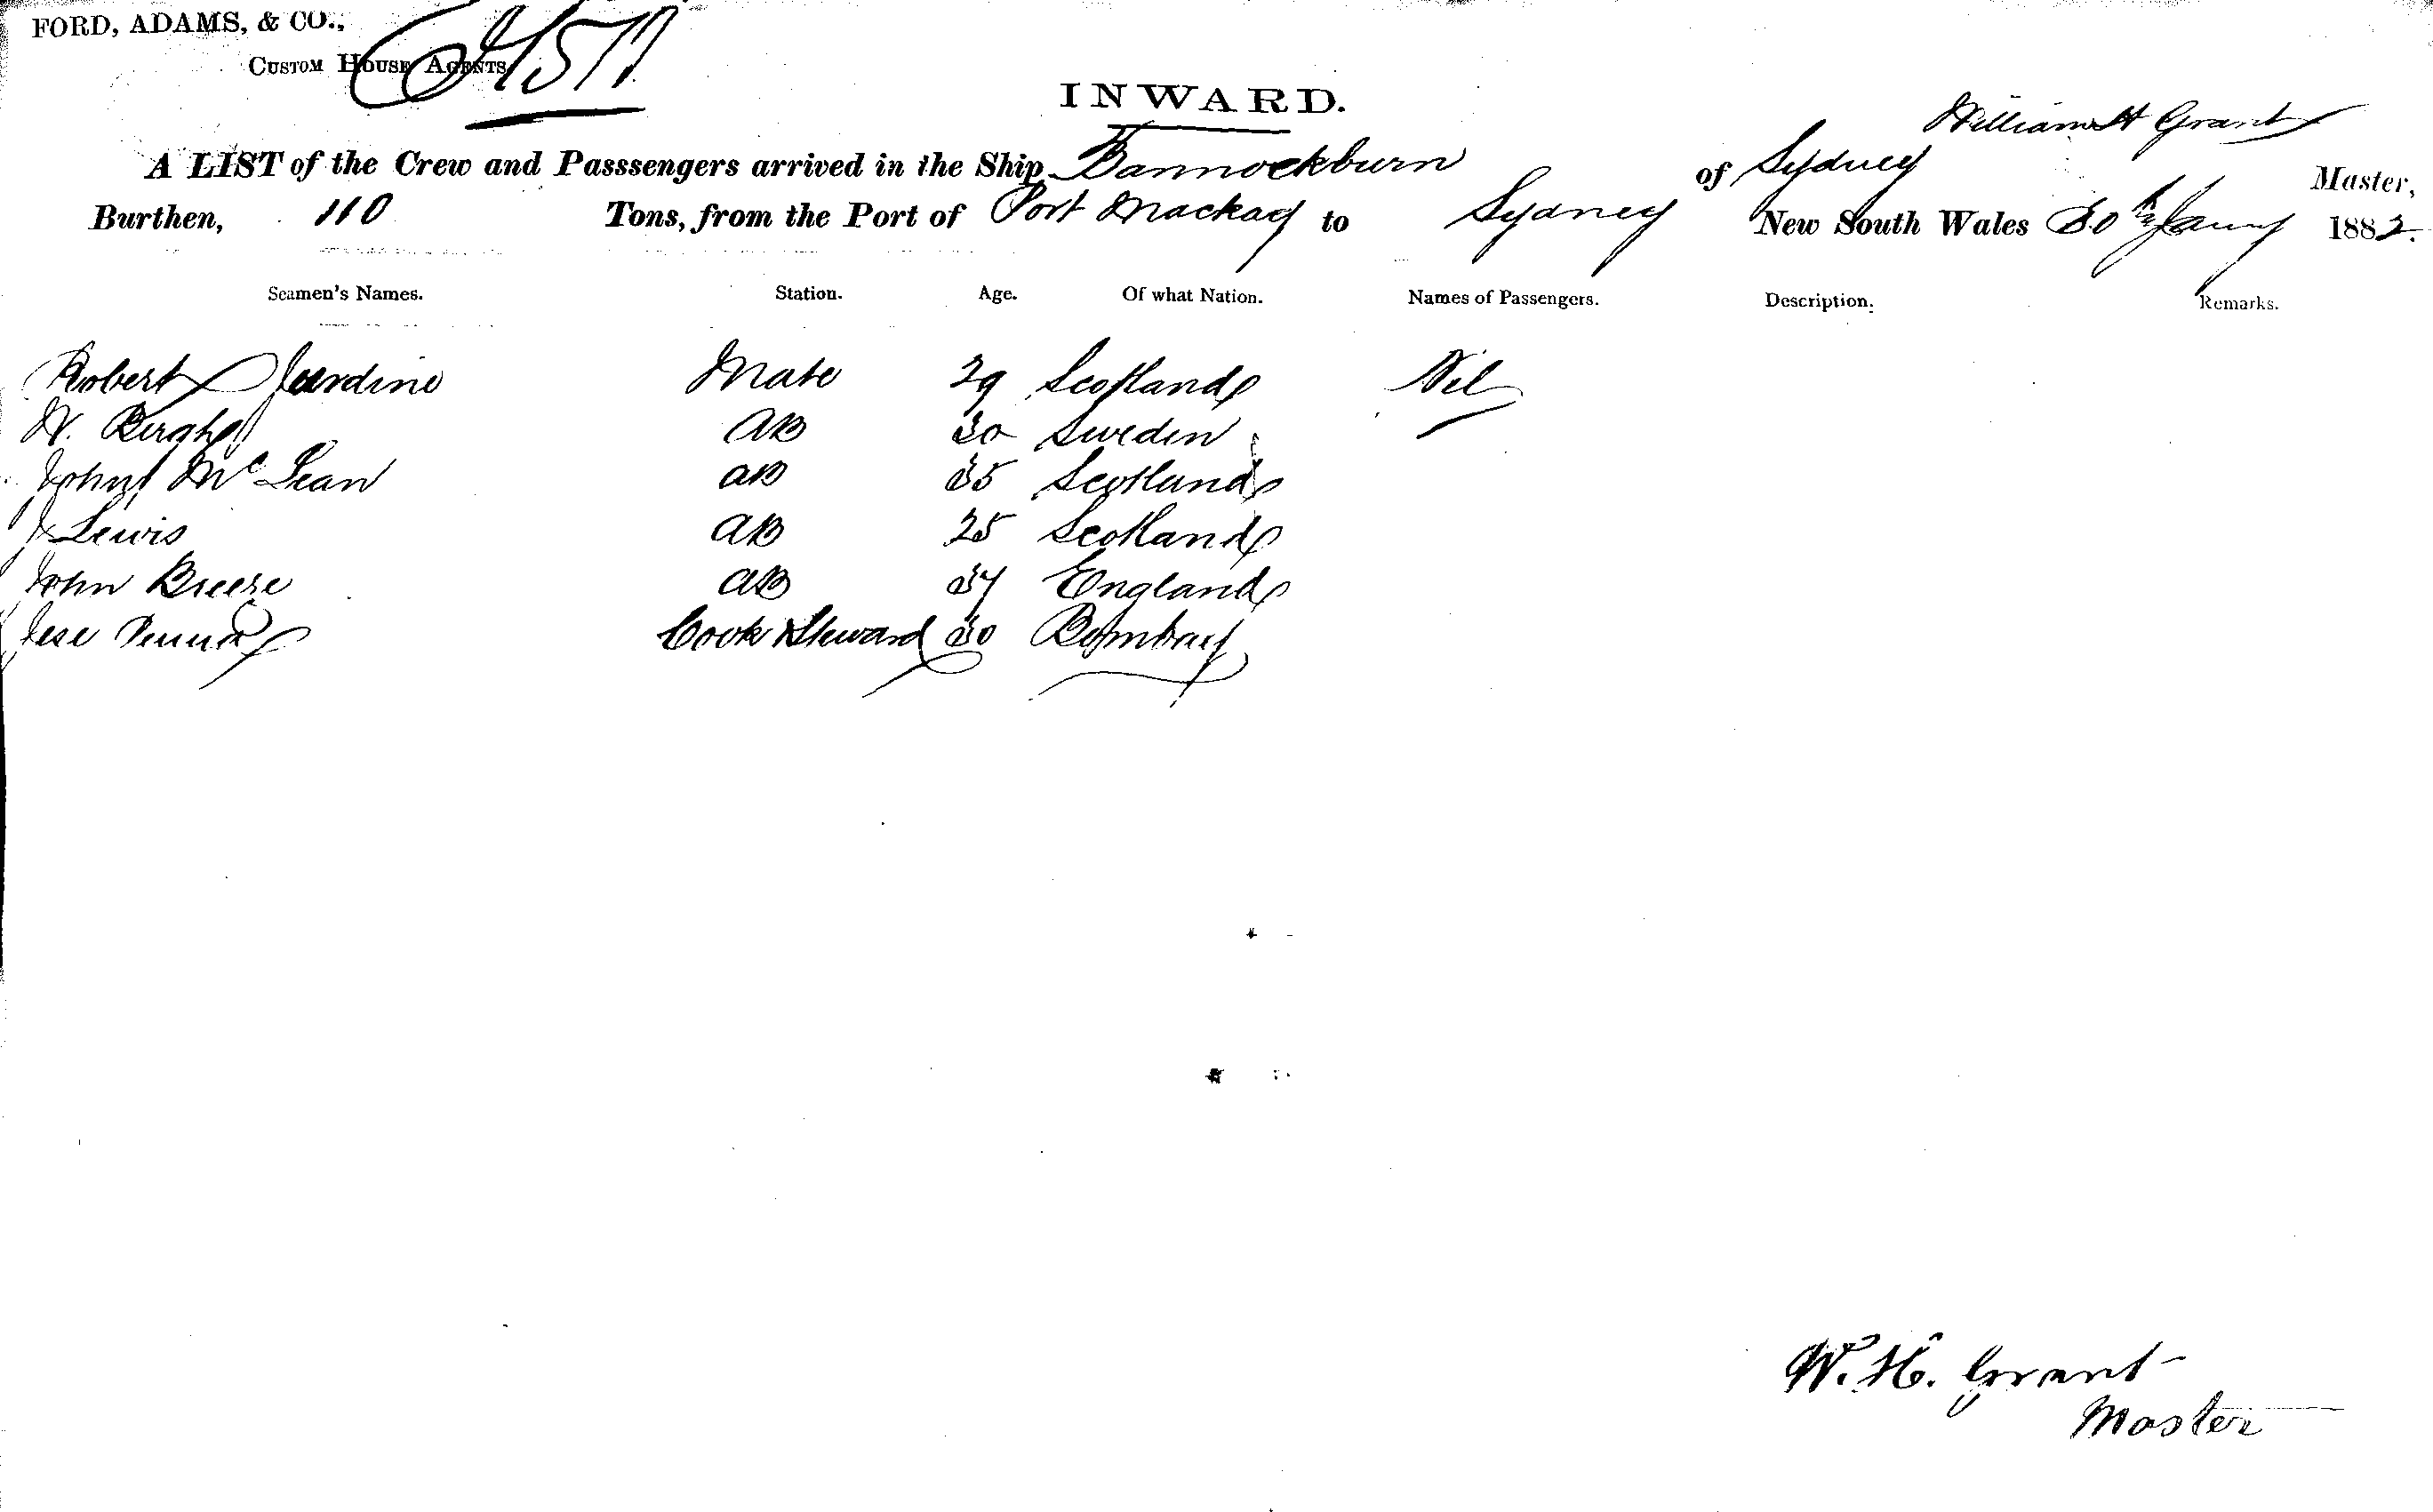 FORD, ADAMS, & CO.,
CUSTOM HOUSE AGENTS
INWARD.
William H Grant
A LIST of the Crew and Passsengers arrived in the Ship Bannockburn of Sydney Master,
Burthen, 110 Tons, from the Port of Port Mackay to Sydney New South Wales 30th Jany 1882.
Seamen's Names. Station. Age. Of what Nation. Names of Passengers. Description. Remarks.
Robert Jardine Mate 29 Scotland Nil
AB 30 Sweden
John Mc Lean AB 35 Scotland
J Lewis AB 25 Scotland
John Breese AB 34 England
Cook & Steward 30 Bombay
W. H. Grant
Master